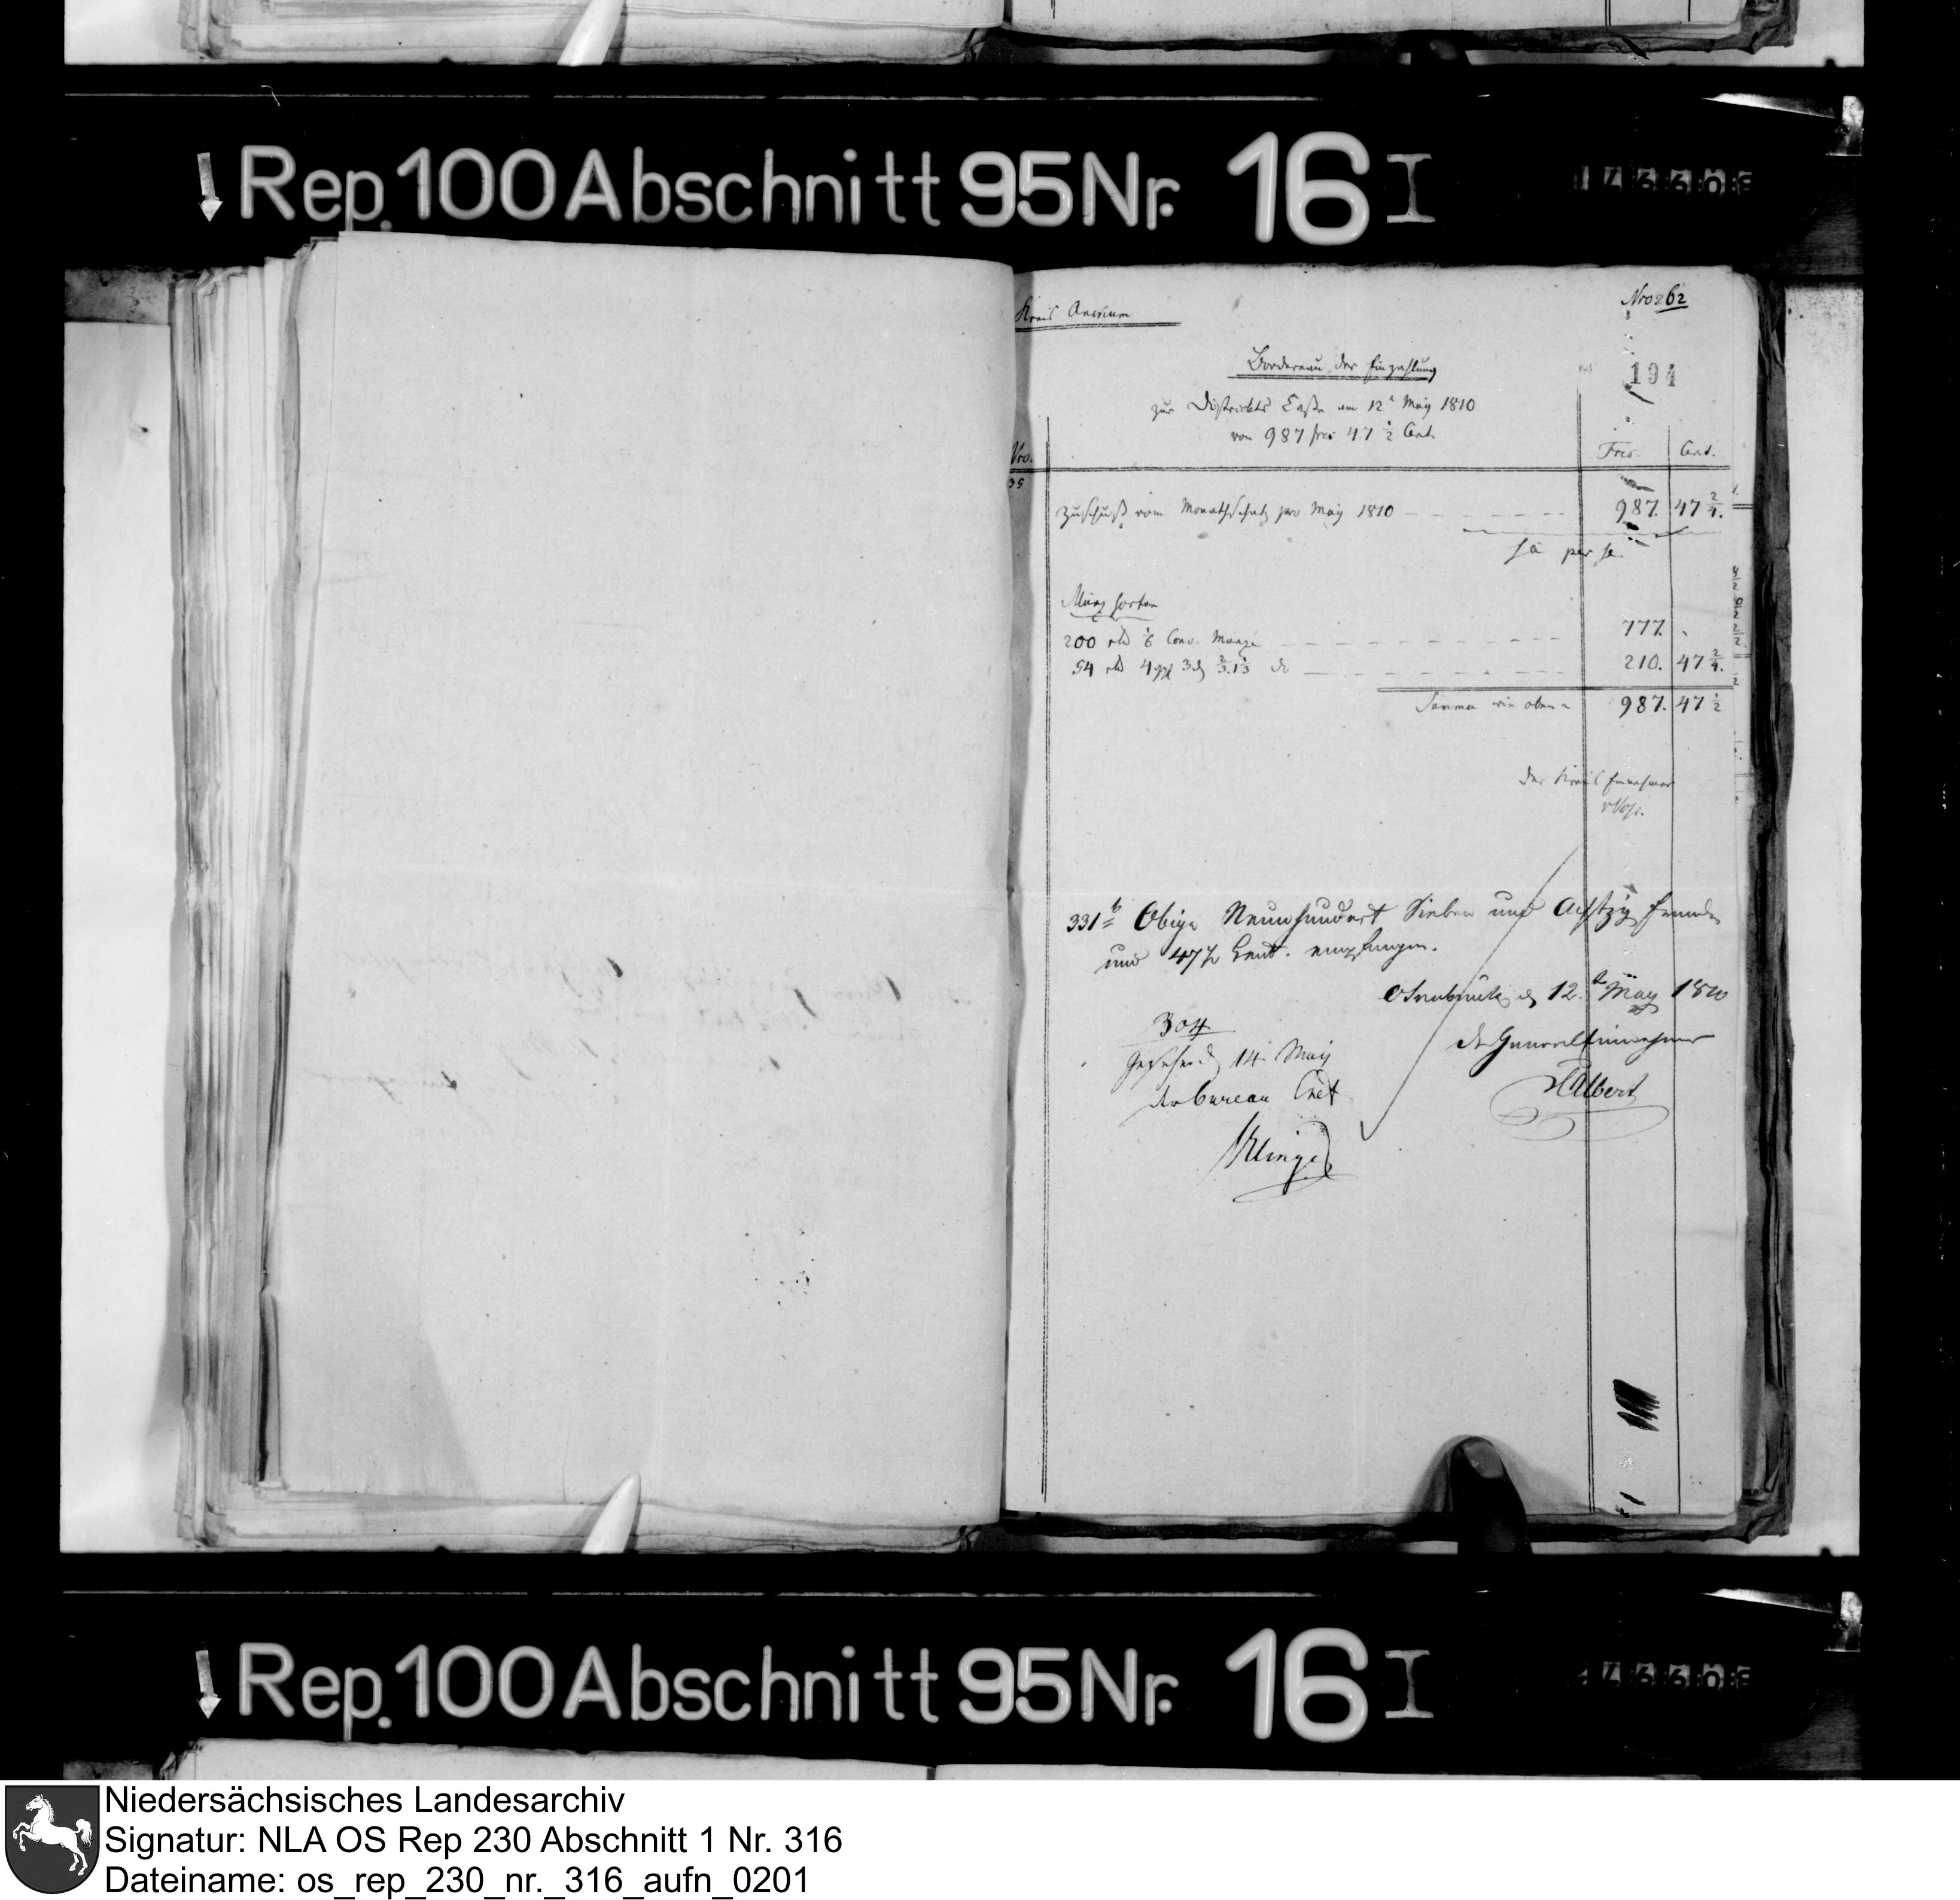 Rep. 100 Abschnitt 95 Nr. 16 I
Kreis Anckum
Nro 262
194
Bordereau der Einzahlung
zur Districkts Casse am 12t May 1810
von 987 frcs 47 1/2 Cent.
Nro.
Frcs.
Cent.
35
Zuschuß vom Monathschatz pro May 1810
987.
47 2/4.
Sa per se
Münz sorten
200 rtl 1/6 Conv. Münze
777.
54 rtl 4 ggl 3 d 2/3. 1/3 do
210.
47 2/4.
Summa wie oben
987.
47 1/2
Der Kreis Einnehmer
331 b Obige Neunhundert Sieben und Achtzig Francs
und 47 1/2 Cent. empfangen.
Osnabrück d 12. May 1810
der General Einnehmer
Albert
304
Gesehen d 14 May
der bureau Chef
Klinge
Rep. 100 Abschnitt 95 Nr. 16 I
Niedersächsisches Landesarchiv
Signatur: NLA OS Rep 230 Abschnitt 1 Nr. 316
Dateiname: os_rep_230_nr._316_aufn_0201